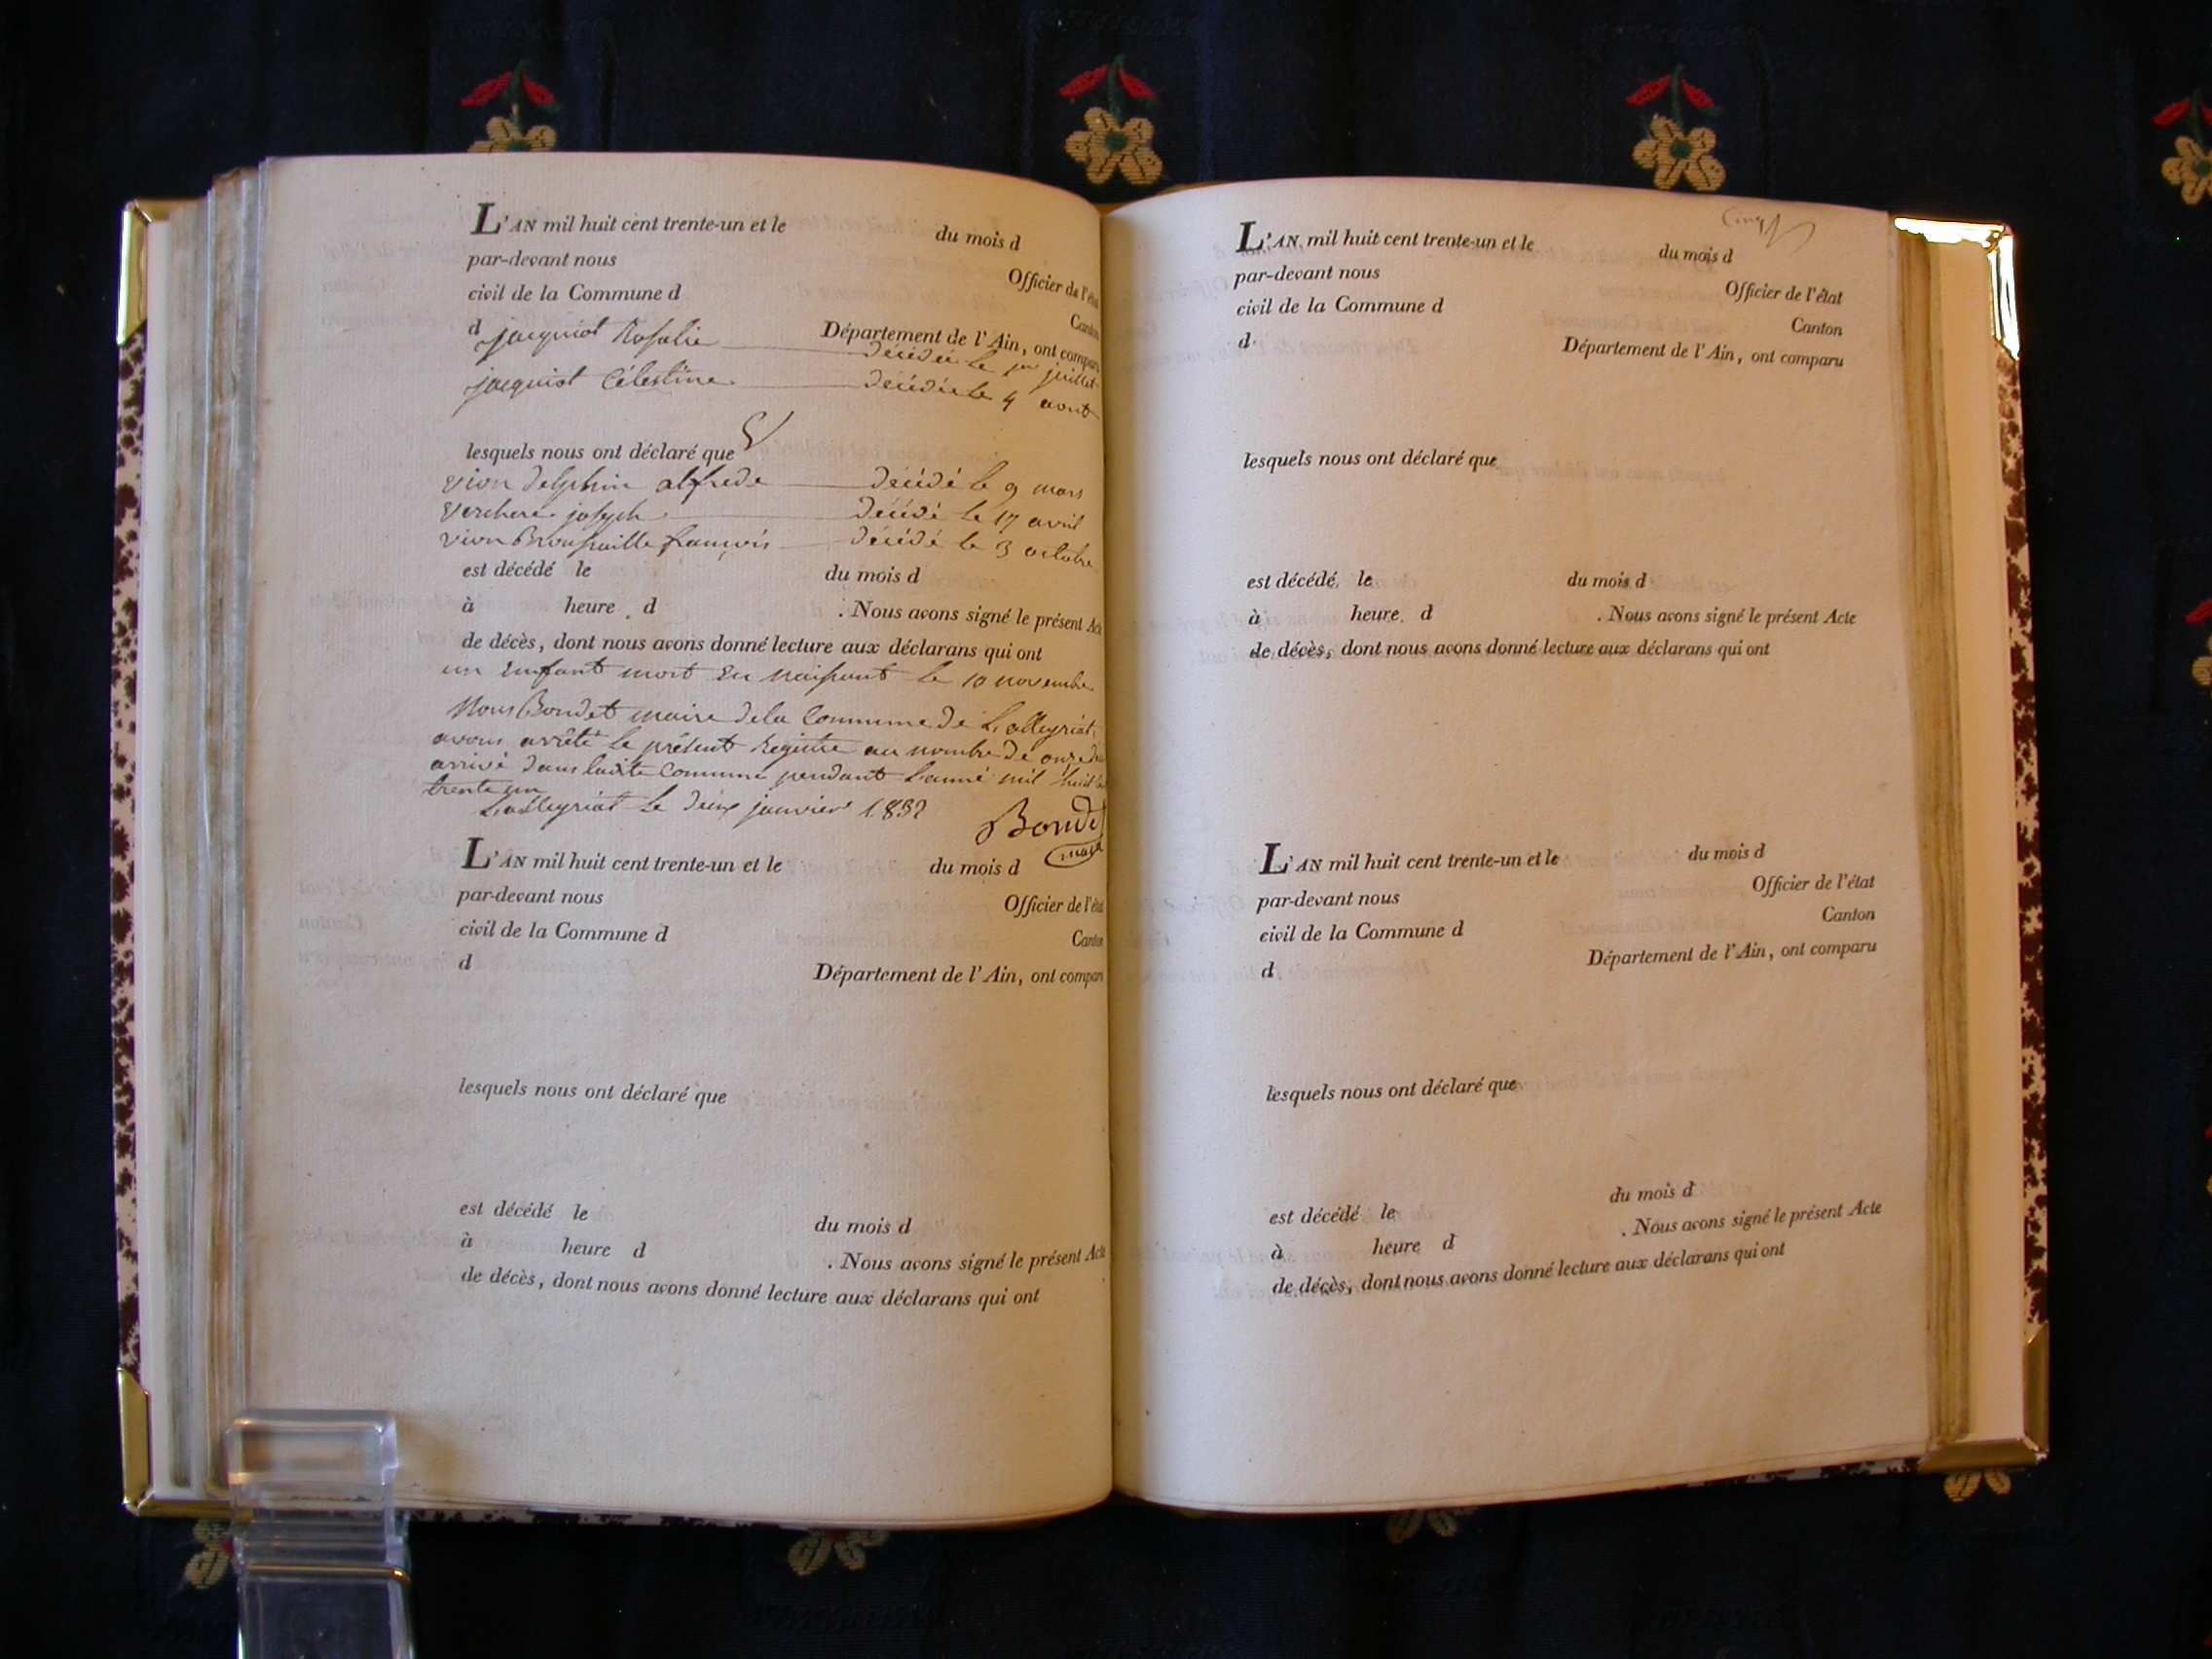 L'AN mil huit cent trente-un et le du mois d
par-devant nous Officier de l'éta
civil de la Commune d Canton
d Département de l'Ain, ont compar
jacquiot Rosalie décédée le 1er juillet
jacquiot Célestine décédée le 4 aout
V
lesquels nous ont déclaré que
vion delphin alfrede décédé le 9 mars
Verchere joseph décédé le 17 avril
vion Broussaille françois décédé le 3 octobre
est décédé le du mois d
à heure d . Nous avons signé le présent Act
de décès, dont nous avons donné lecture aux déclarans qui ont
un enfant mort en naissant le 10 novembre
Nous Bondet maire de la Commune de Lalleyriat,
avons arrêté le présent Registre au nombre de onze
arrivé dans ladite Commune pendant l'anné mil huit
trente un
Lalleyriat le deux janvier 1832
Bondet
maire
L'AN mil huit cent trente-un et le du mois d
par-devant nous Officier de l'éta
civil de la Commune d Canton
d Département de l'Ain, ont compar
lesquels nous ont déclaré que
est décédé le du mois d
à heure d . Nous avons signé le présent Acte
de décès, dont nous avons donné lecture aux déclarans qui ont
Cinq
L'AN mil huit cent trente-un et le du mois d
par-devant nous Officier de l'état
civil de la Commune d Canton
d Département de l'Ain, ont comparu
lesquels nous ont déclaré que
est décédé le du mois d
à heure d . Nous avons signé le présent Acte
de décès, dont nous avons donné lecture aux déclarans qui ont
L'AN mil huit cent trente-un et le du mois d
par-devant nous Officier de l'état
civil de la Commune d Canton
d Département de l'Ain, ont comparu
lesquels nous ont déclaré que
est décédé le du mois d
à heure d . Nous avons signé le présent Acte
de décès, dont nous avons donné lecture aux déclarans qui ont